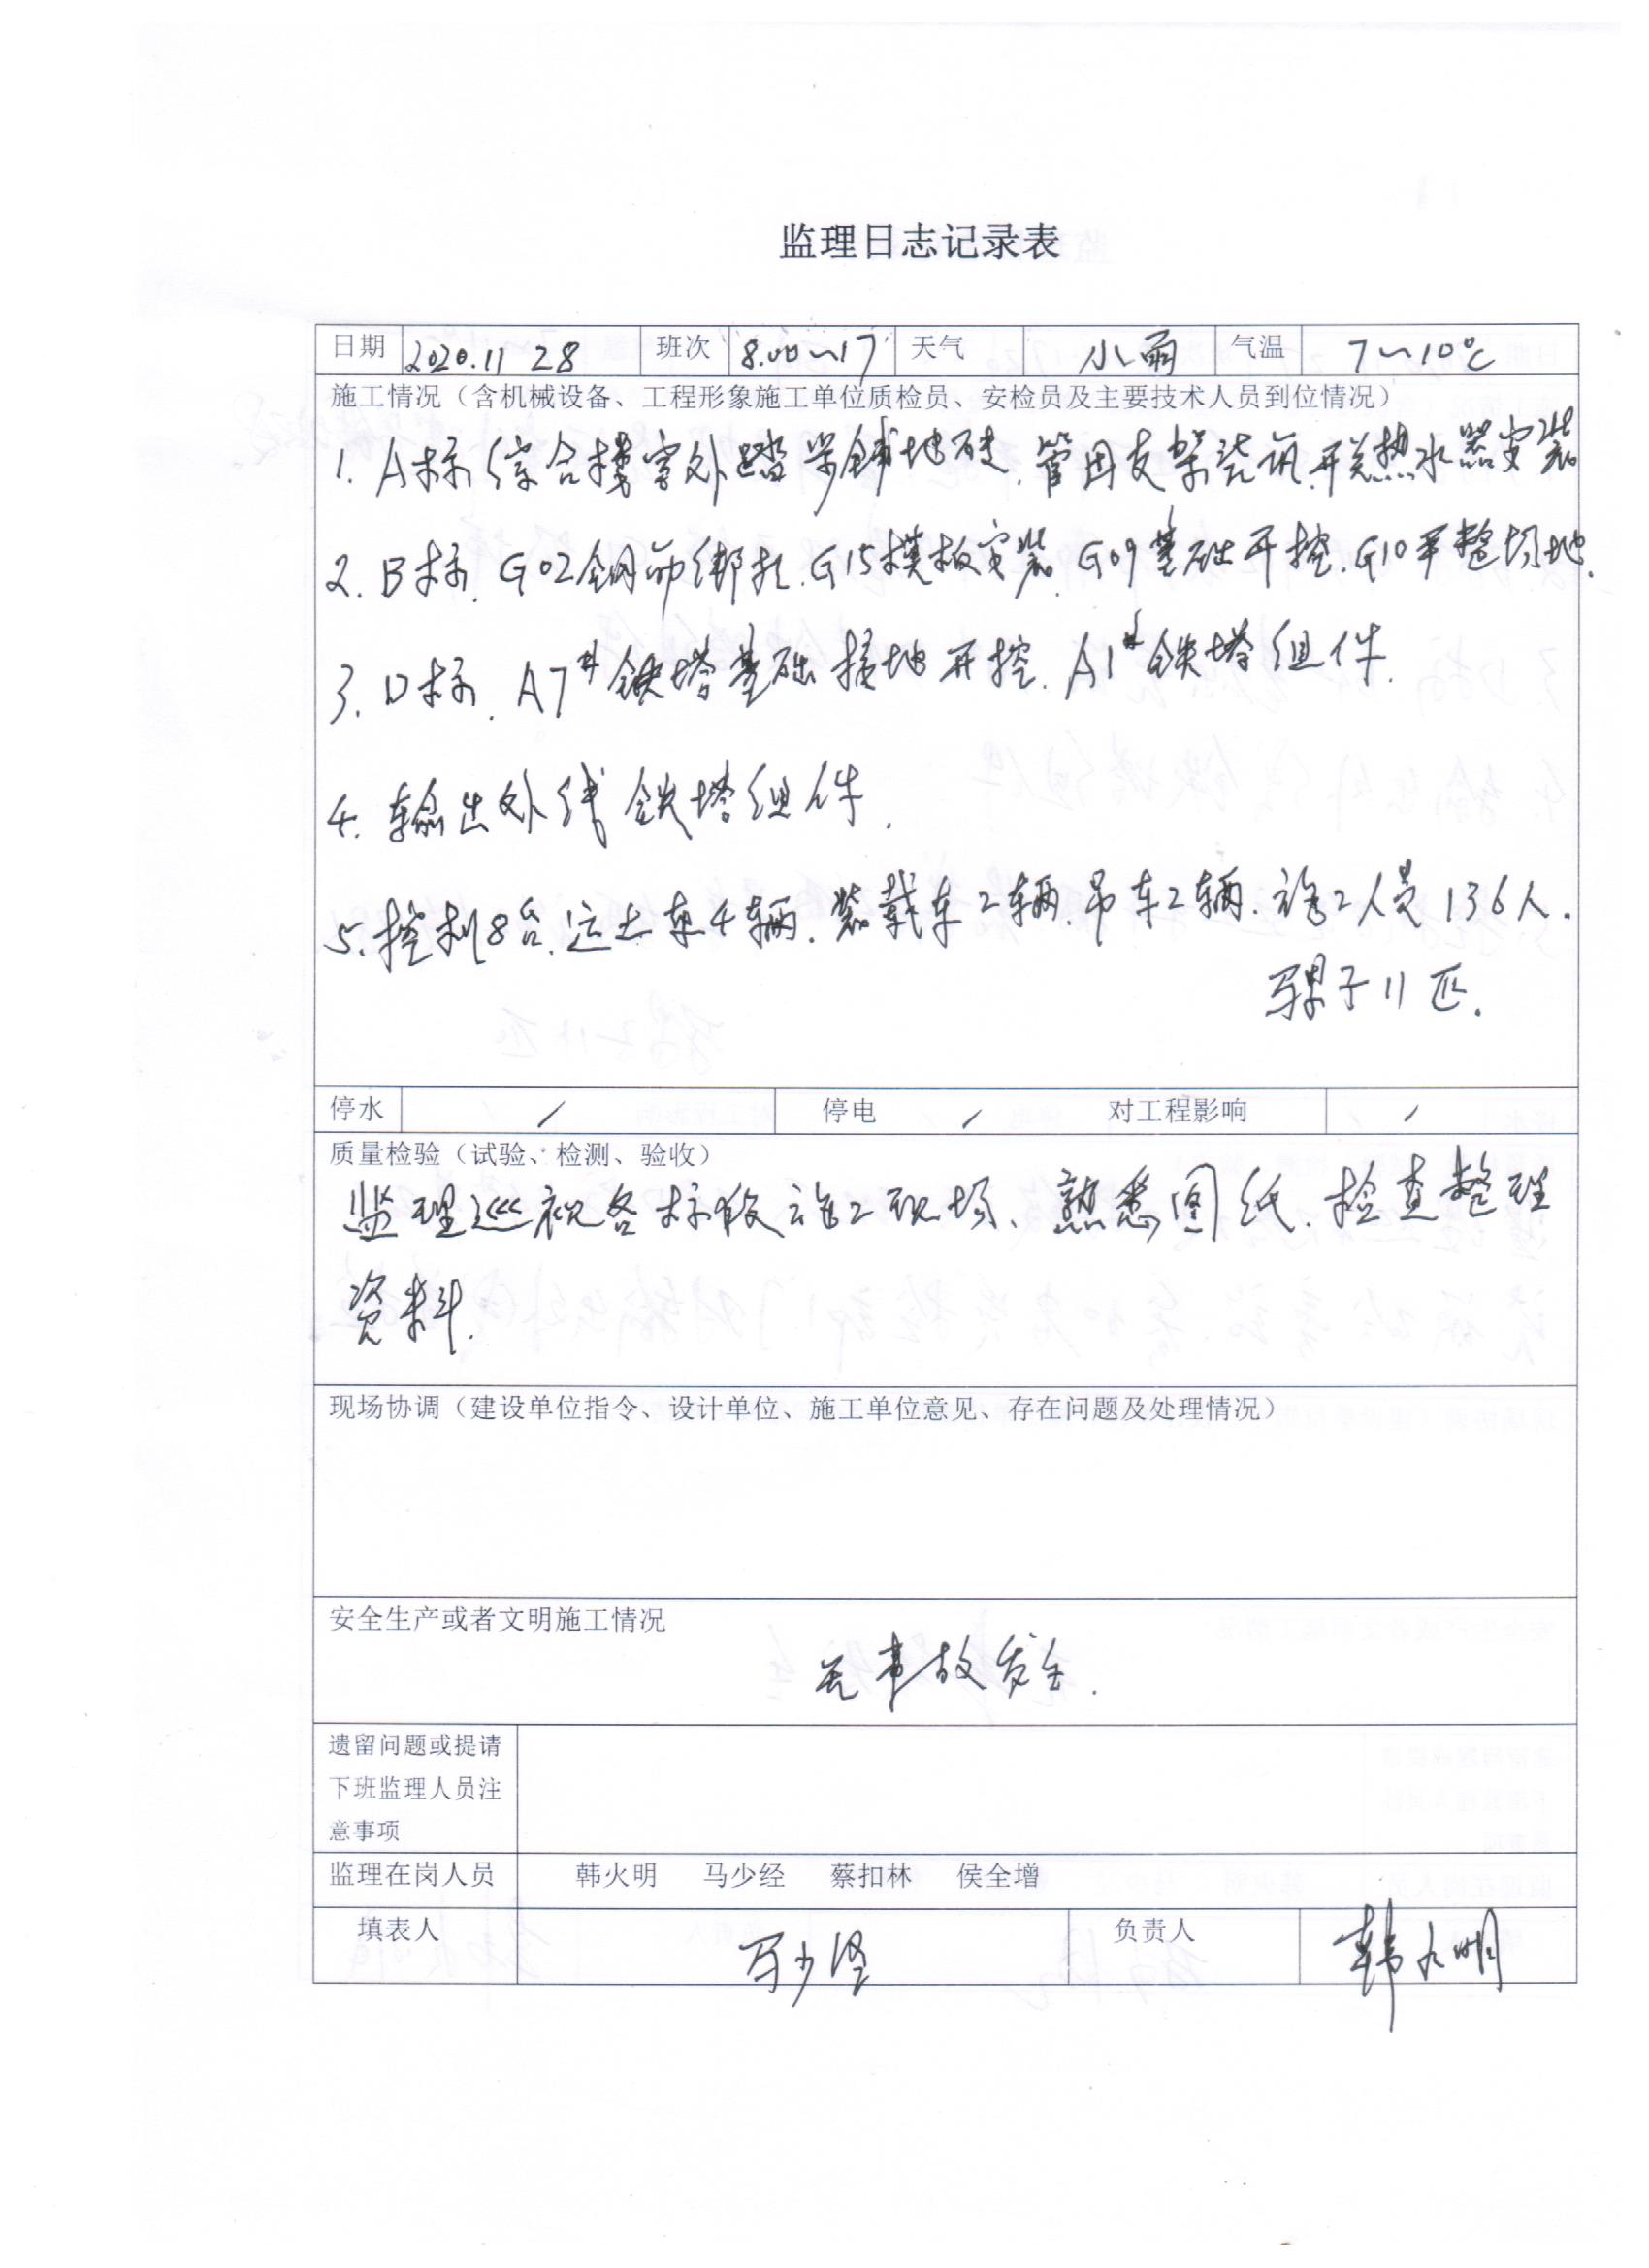 监理日志记录表
日期 2020.11 28 班次 8.00~17 天气 小雨 气温 7~10℃
施工情况（含机械设备、工程形象施工单位质检员、安检员及主要技术人员到位情况）
1. A标综合楼室外踏步铺地砖.管母支架浇筑.开关热水器安装
2. B标. G02钢筋绑扎.G15模板安装.G09基础开挖.G10平整场地.
3. D标. A7#铁塔基础接地开挖. A1#铁塔组件.
4. 输出外线铁塔组件.
5. 挖机8台.运土车4辆.装载车2辆.吊车2辆.施工人员136人.
骡子11匹.
停水 / 停电 / 对工程影响 /
质量检验（试验、检测、验收）
监理巡视各标段施工现场、熟悉图纸.检查整理
资料.
现场协调（建设单位指令、设计单位、施工单位意见、存在问题及处理情况）
安全生产或者文明施工情况
无事故发生.
遗留问题或提请
下班监理人员注
意事项
监理在岗人员 韩火明 马少经 蔡扣林 侯全增
填表人 马少经 负责人 韩火明